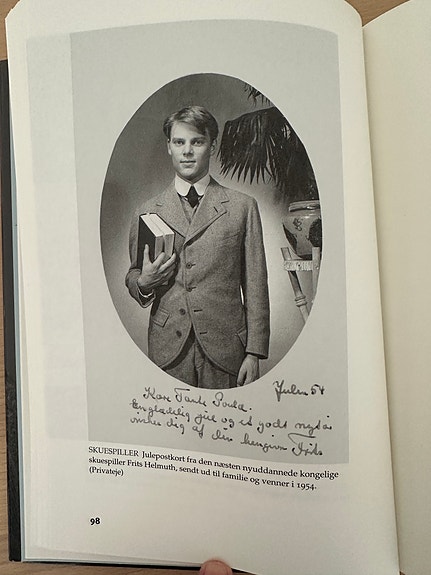 Kære Tante Poula.
Julen 54
En glædelig jul og et godt nytår
ønskes dig af din hengivne Frits
SKUESPILLER Julepostkort fra den næsten nyuddannede kongelige
skuespiller Frits Helmuth, sendt ud til familie og venner i 1954.
(Privateje)
98